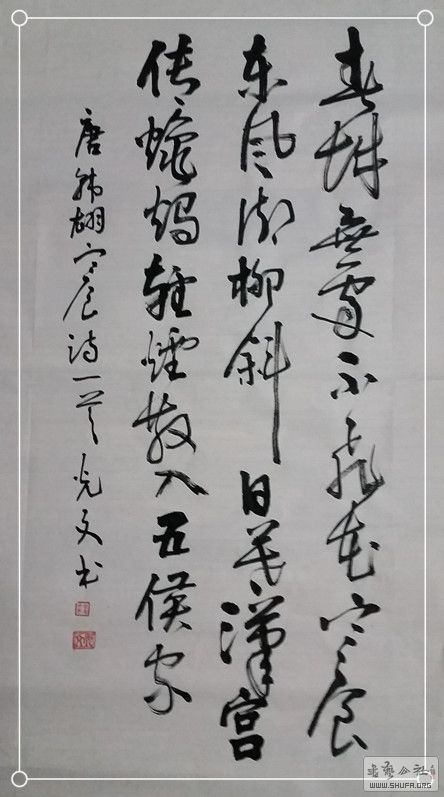 春城無處不飛花寒食
东风御柳斜日暮漢宫
传蠟燭轻煙散入五侯家
唐韩翃寒食诗一首 光文书
書藝公社
WWW.SHUFA.ORG